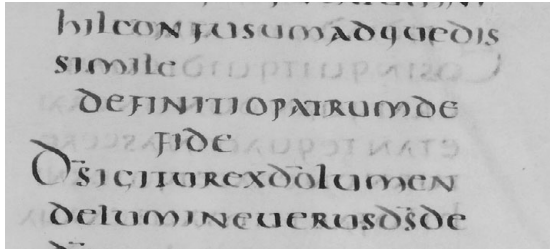 hilconfusumadquedis
simile
definitiopatrumde
fide
Ds̄igiturexdōlumen
delumineuerusds̄de